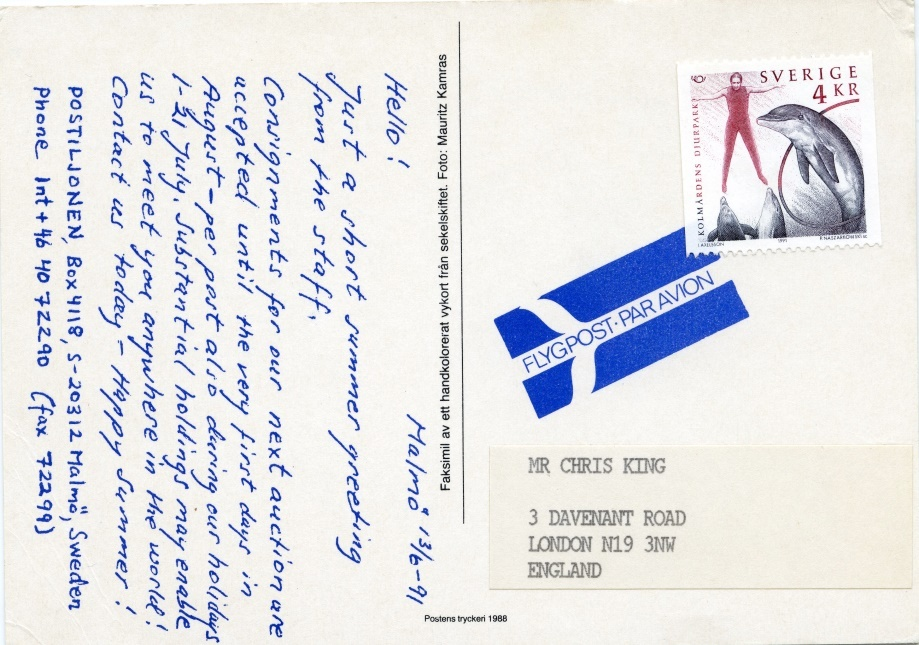 Hello!
Malmö 13/6-91
Just a short summer greeting
from the staff.
Consignments for our next auction are
accepted until the very first days in
August - per post also during our holidays
1-21 July. Substantial holdings may enable
us to meet you anywhere in the world!
Contact us today - Happy Summer!
POSTILJONEN, Box 4118, S-20312 Malmö, Sweden
Phone Int+46 40 72290 (fax 72299)
Faksimil av ett handkolorerat vykort från sekelskiftet. Foto: Mauritz Kamras
Postens tryckeri 1988
SVERIGE
4 KR
KOLMÅRDENS DJURPARK
1991
FLYGPOST·PAR AVION
MR CHRIS KING
3 DAVENANT ROAD
LONDON N19 3NW
ENGLAND